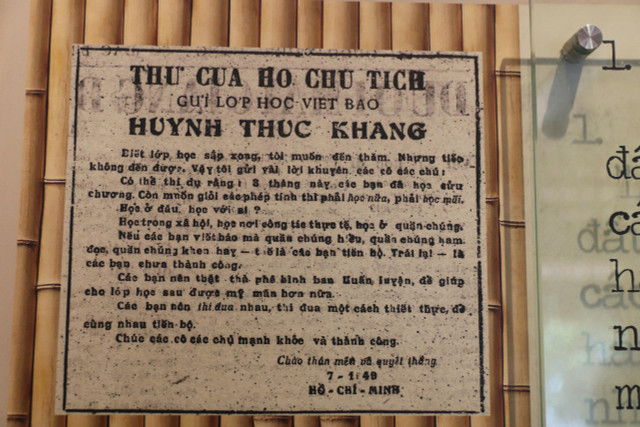 THƯ CUA HO CHU TICH
GƯI LƠP HOC VIET BAO
HUYNH THUC KHANG
Biết lớp học sắp xong, tôi muốn đến thăm. Nhưng tiếc
không đến được. Vậy tôi gửi vài lời khuyên các cô các chú:
Có thể thí dụ rằng: 3 tháng này, các bạn đã học cửu
chương. Còn muốn giỏi các phép tính thì phải học nữa, phải học mãi.
Học ở đâu, học với ai ?
Học trong xã hội, học nơi công tác thực tế, học ở quần chúng.
Nếu các bạn viết báo mà quần chúng hiểu, quần chúng ham
đọc, quần chúng khen hay — thế là các bạn tiến bộ. Trái lại — là
các bạn chưa thành công.
Các bạn nên thật thà phê bình ban Huấn luyện, để giúp
cho lớp học sau được mỹ mãn hơn nữa.
Các bạn nên thi đua nhau, thi đua một cách thiết thực, để
cùng nhau tiến bộ.
Chúc các cô các chú mạnh khỏe và thành công.
Chào thân mến và quyết thắng
7 - 1949
HỒ - CHÍ - MINH
1.